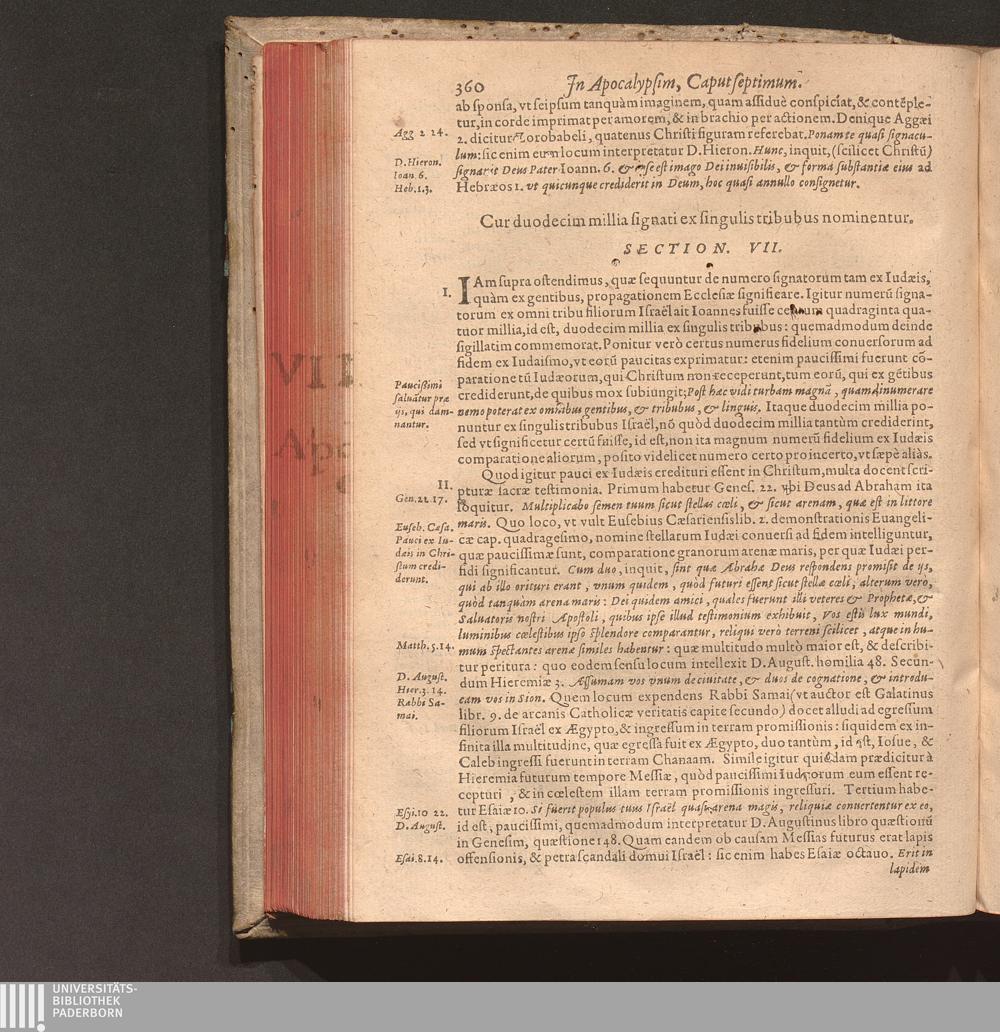 360 In Apocalypsim, Caput septimum.
ab sponsa, vt seipsum tanquàm imaginem, quam assiduè conspiciat, & contẽple-
tur, in corde imprimat per amorem, & in brachio per actionem. Denique Aggæi
Agg 2 24.
2. dicitur Zorobabeli, quatenus Christi figuram referebat. Ponam te quasi signacu-
lum: sic enim eum locum interpretatur D. Hieron. Hunc, inquit, (scilicet Christũ)
D. Hieron.
Ioan. 6.
Heb. 1.3.
signauit Deus Pater Ioann. 6. & ipse est imago Dei inuisibilis, & forma substantiæ eius ad
Hebræos 1. vt quicunque crediderit in Deum, hoc quasi annullo consignetur.
Cur duodecim millia signati ex singulis tribubus nominentur.
SECTION. VII.
I.
IAm supra ostendimus, quæ sequuntur de numero signatorum tam ex Iudæis,
quàm ex gentibus, propagationem Ecclesiæ significare. Igitur numerũ signa-
torum ex omni tribu filiorum Israël ait Ioannes fuisse centum quadraginta qua-
tuor millia, id est, duodecim millia ex singulis tribubus: quemadmodum deinde
sigillatim commemorat. Ponitur verò certus numerus fidelium conuersorum ad
fidem ex Iudaismo, vt eorũ paucitas exprimatur: etenim paucissimi fuerunt cõ-
paratione tũ Iudæorum, qui Christum non receperunt, tum eorũ, qui ex gẽtibus
Paucißimi
saluãtur præ
ijs, qui dam-
nantur.
crediderunt, de quibus mox subiungit; Post hæc vidi turbam magnã, quam dinumerare
nemo poterat ex omnibus gentibus, & tribubus, & linguis. Itaque duodecim millia po-
nuntur ex singulis tribubus Israël, nõ quòd duodecim millia tantùm crediderint,
sed vt significetur certũ fuisse, id est, non ita magnum numerũ fidelium ex Iudæis
comparatione aliorum, posito videlicet numero certo pro incerto, vt sæpè aliàs.
II.
Quod igitur pauci ex Iudæis credituri essent in Christum, multa docent scri-
Gen. 22. 17.
pturæ sacræ testimonia. Primum habetur Genes. 22. vbi Deus ad Abraham ita
loquitur. Multiplicabo semen tuum sicut stellas cœli, & sicut arenam, quæ est in littore
Euseb. Cæsa.
Pauci ex Iu-
dæis in Chri-
stum credi-
derunt.
maris. Quo loco, vt vult Eusebius Cæsariensis lib. 2. demonstrationis Euangeli-
cæ cap. quadragesimo, nomine stellarum Iudæi conuersi ad fidem intelliguntur,
quæ paucissimæ sunt, comparatione granorum arenæ maris, per quæ Iudæi per-
fidi significantur. Cum duo, inquit, sint quæ Abrahæ Deus respondens promisit de ijs,
qui ab illo orituri erant, vnum quidem, quòd futuri essent sicut stellæ cœli, alterum verò,
quòd tanquàm arena maris: Dei quidem amici, quales fuerunt illi veteres & Prophetæ, &
Saluatoris nostri Apostoli, quibus ipse illud testimonium exhibuit, Vos estis lux mundi,
luminibus cœlestibus ipso splendore comparantur, reliqui verò terreni scilicet, atque in hu-
Matth. 5.14.
mum spectantes arenæ similes habentur: quæ multitudo multò maior est, & describi-
tur peritura: quo eodem sensu locum intellexit D. August. homilia 48. Secun-
D. August.
Hier. 3. 14.
Rabbi Sa-
mai.
dum Hieremiæ 3. Assumam vos vnum de ciuitate, & duos de cognatione, & introdu-
cam vos in Sion. Quem locum expendens Rabbi Samai (vt auctor est Galatinus
libr. 9. de arcanis Catholicæ veritatis capite secundo) docet alludi ad egressum
filiorum Israël ex Ægypto, & ingressum in terram promissionis: siquidem ex in-
finita illa multitudine, quæ egressa fuit ex Ægypto, duo tantùm, id est, Iosue, &
Caleb ingressi fuerunt in terram Chanaam. Simile igitur quiddam prædicitur à
Hieremia futurum tempore Messiæ, quòd paucissimi Iudæorum eum essent re-
cepturi, & in cœlestem illam terram promissionis ingressuri. Tertium habe-
Esai. 10 22.
D. August.
tur Esaiæ 10. Si fuerit populus tuus Israël quasi arena magis, reliquiæ conuertentur ex eo,
id est, paucissimi, quemadmodum interpretatur D. Augustinus libro quæstionũ
in Genesim, quæstione 148. Quam eandem ob causam Messias futurus erat lapis
Esai. 8.14.
offensionis, & petra scandali domui Israël: sic enim habes Esaiæ octauo. Erit in
lapidem
UNIVERSITÄTS-
BIBLIOTHEK
PADERBORN